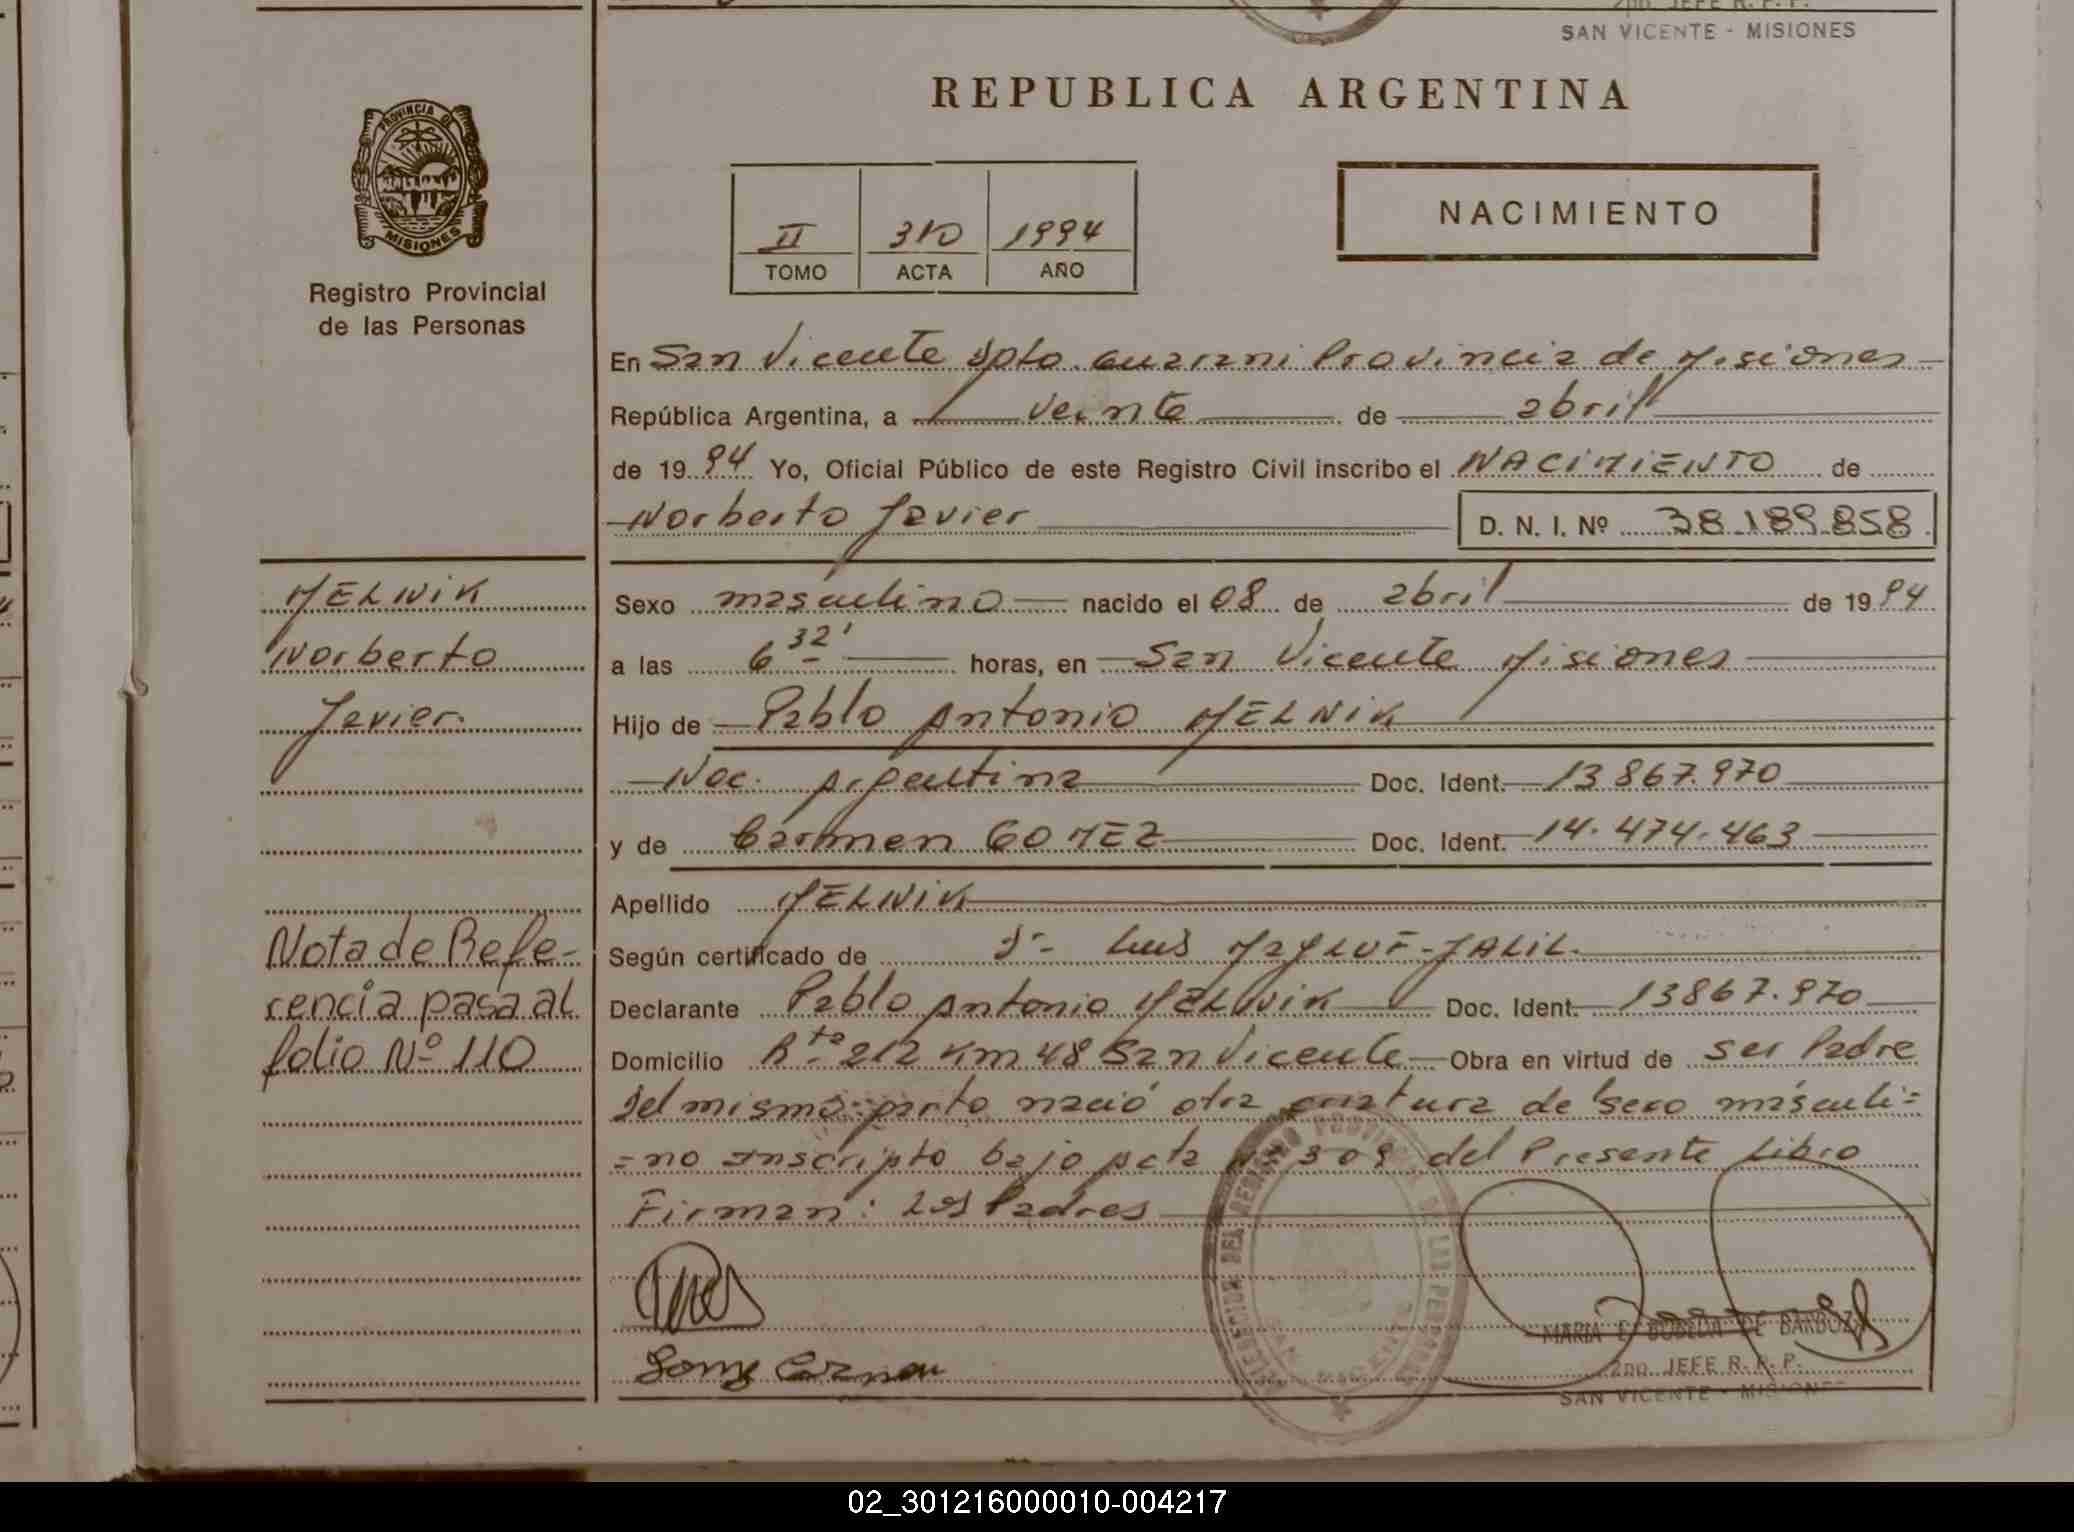 2do. JEFE R. P. P.
SAN VICENTE - MISIONES
REPUBLICA ARGENTINA
PROVINCIA DE
MISIONES
Registro Provincial
de las Personas
II 310 1994
TOMO ACTA AÑO
NACIMIENTO
En San Vicente Dpto. Guarani Provincia de Misiones
República Argentina, a veinte de abril
de 1994 Yo, Oficial Público de este Registro Civil inscribo el NACIMIENTO de
Norberto Javier D. N. I. Nº 38.189.858
MELNIK
Norberto
Javier.
Sexo masculino nacido el 08 de abril de 1994
a las 6 32' horas, en San Vicente Misiones
Hijo de Pablo Antonio MELNIK
Nac. Argentina Doc. Ident. 13867.970
y de Carmen GOMEZ Doc. Ident. 14.474.463
Apellido MELNIK
Según certificado de Dr. Luis JALIL.
Declarante Pablo Antonio MELNIK Doc. Ident. 13867.970
Domicilio Rta 212 Km 48 San Vicente Obra en virtud de ser Padre
del mismo: parto nació otra criatura de sexo másculi=
=no inscripto bajo acta Nº 309 del Presente Libro
Firman: Los Padres
Nota de Refe-
rencia pasa al
folio Nº 110
Gomez Carmen
DEL REGISTRO PROVINCIAL DE LAS PERSONAS
MARIA E. BOBEDA DE BARBOZA
2do. JEFE R. P. P.
SAN VICENTE - MISIONES
02_301216000010-004217